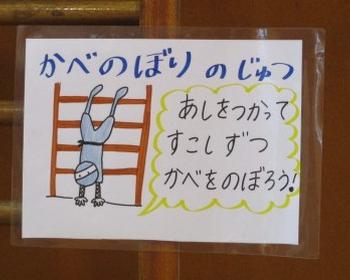 かべのぼり のじゅつ
あしをつかって
すこしずつ
かべをのぼろう!